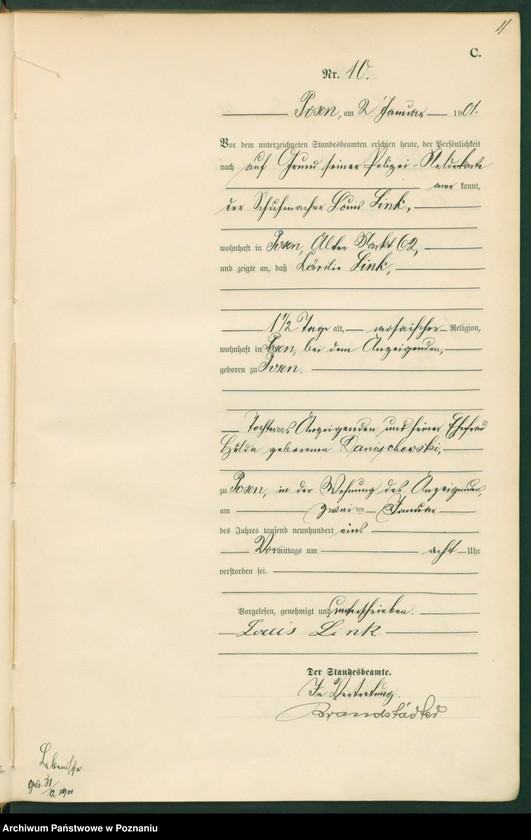 4
C.
Nr. 10.
Posen, am 2 Januar 1901.
Vor dem unterzeichneten Standesbeamten erschien heute, der Persönlichkeit
nach auf Grund seiner Polizei-Meldekarte
aner kannt,
der Schuhmacher Louis Link,
wohnhaft in Posen, Alter Markt 62,
und zeigte an, daß Cäcilie Link,
1 1/2 Tage alt, mosaischer Religion,
wohnhaft in Posen, bei dem Anzeigenden,
geboren zu Posen.
Tochter des Anzeigenden und seiner Ehefrau
Hulda geborenen
zu Posen, in der Wohnung des Anzeigenden,
am zwei ten Januar
des Jahres tausend neunhundert eins
Vormittags um acht Uhr
verstorben sei.
Vorgelesen, genehmigt und unterschrieben.
Louis Link
Der Standesbeamte.
In Vertretung.
Brandstädter
Archiwum Państwowe w Poznaniu